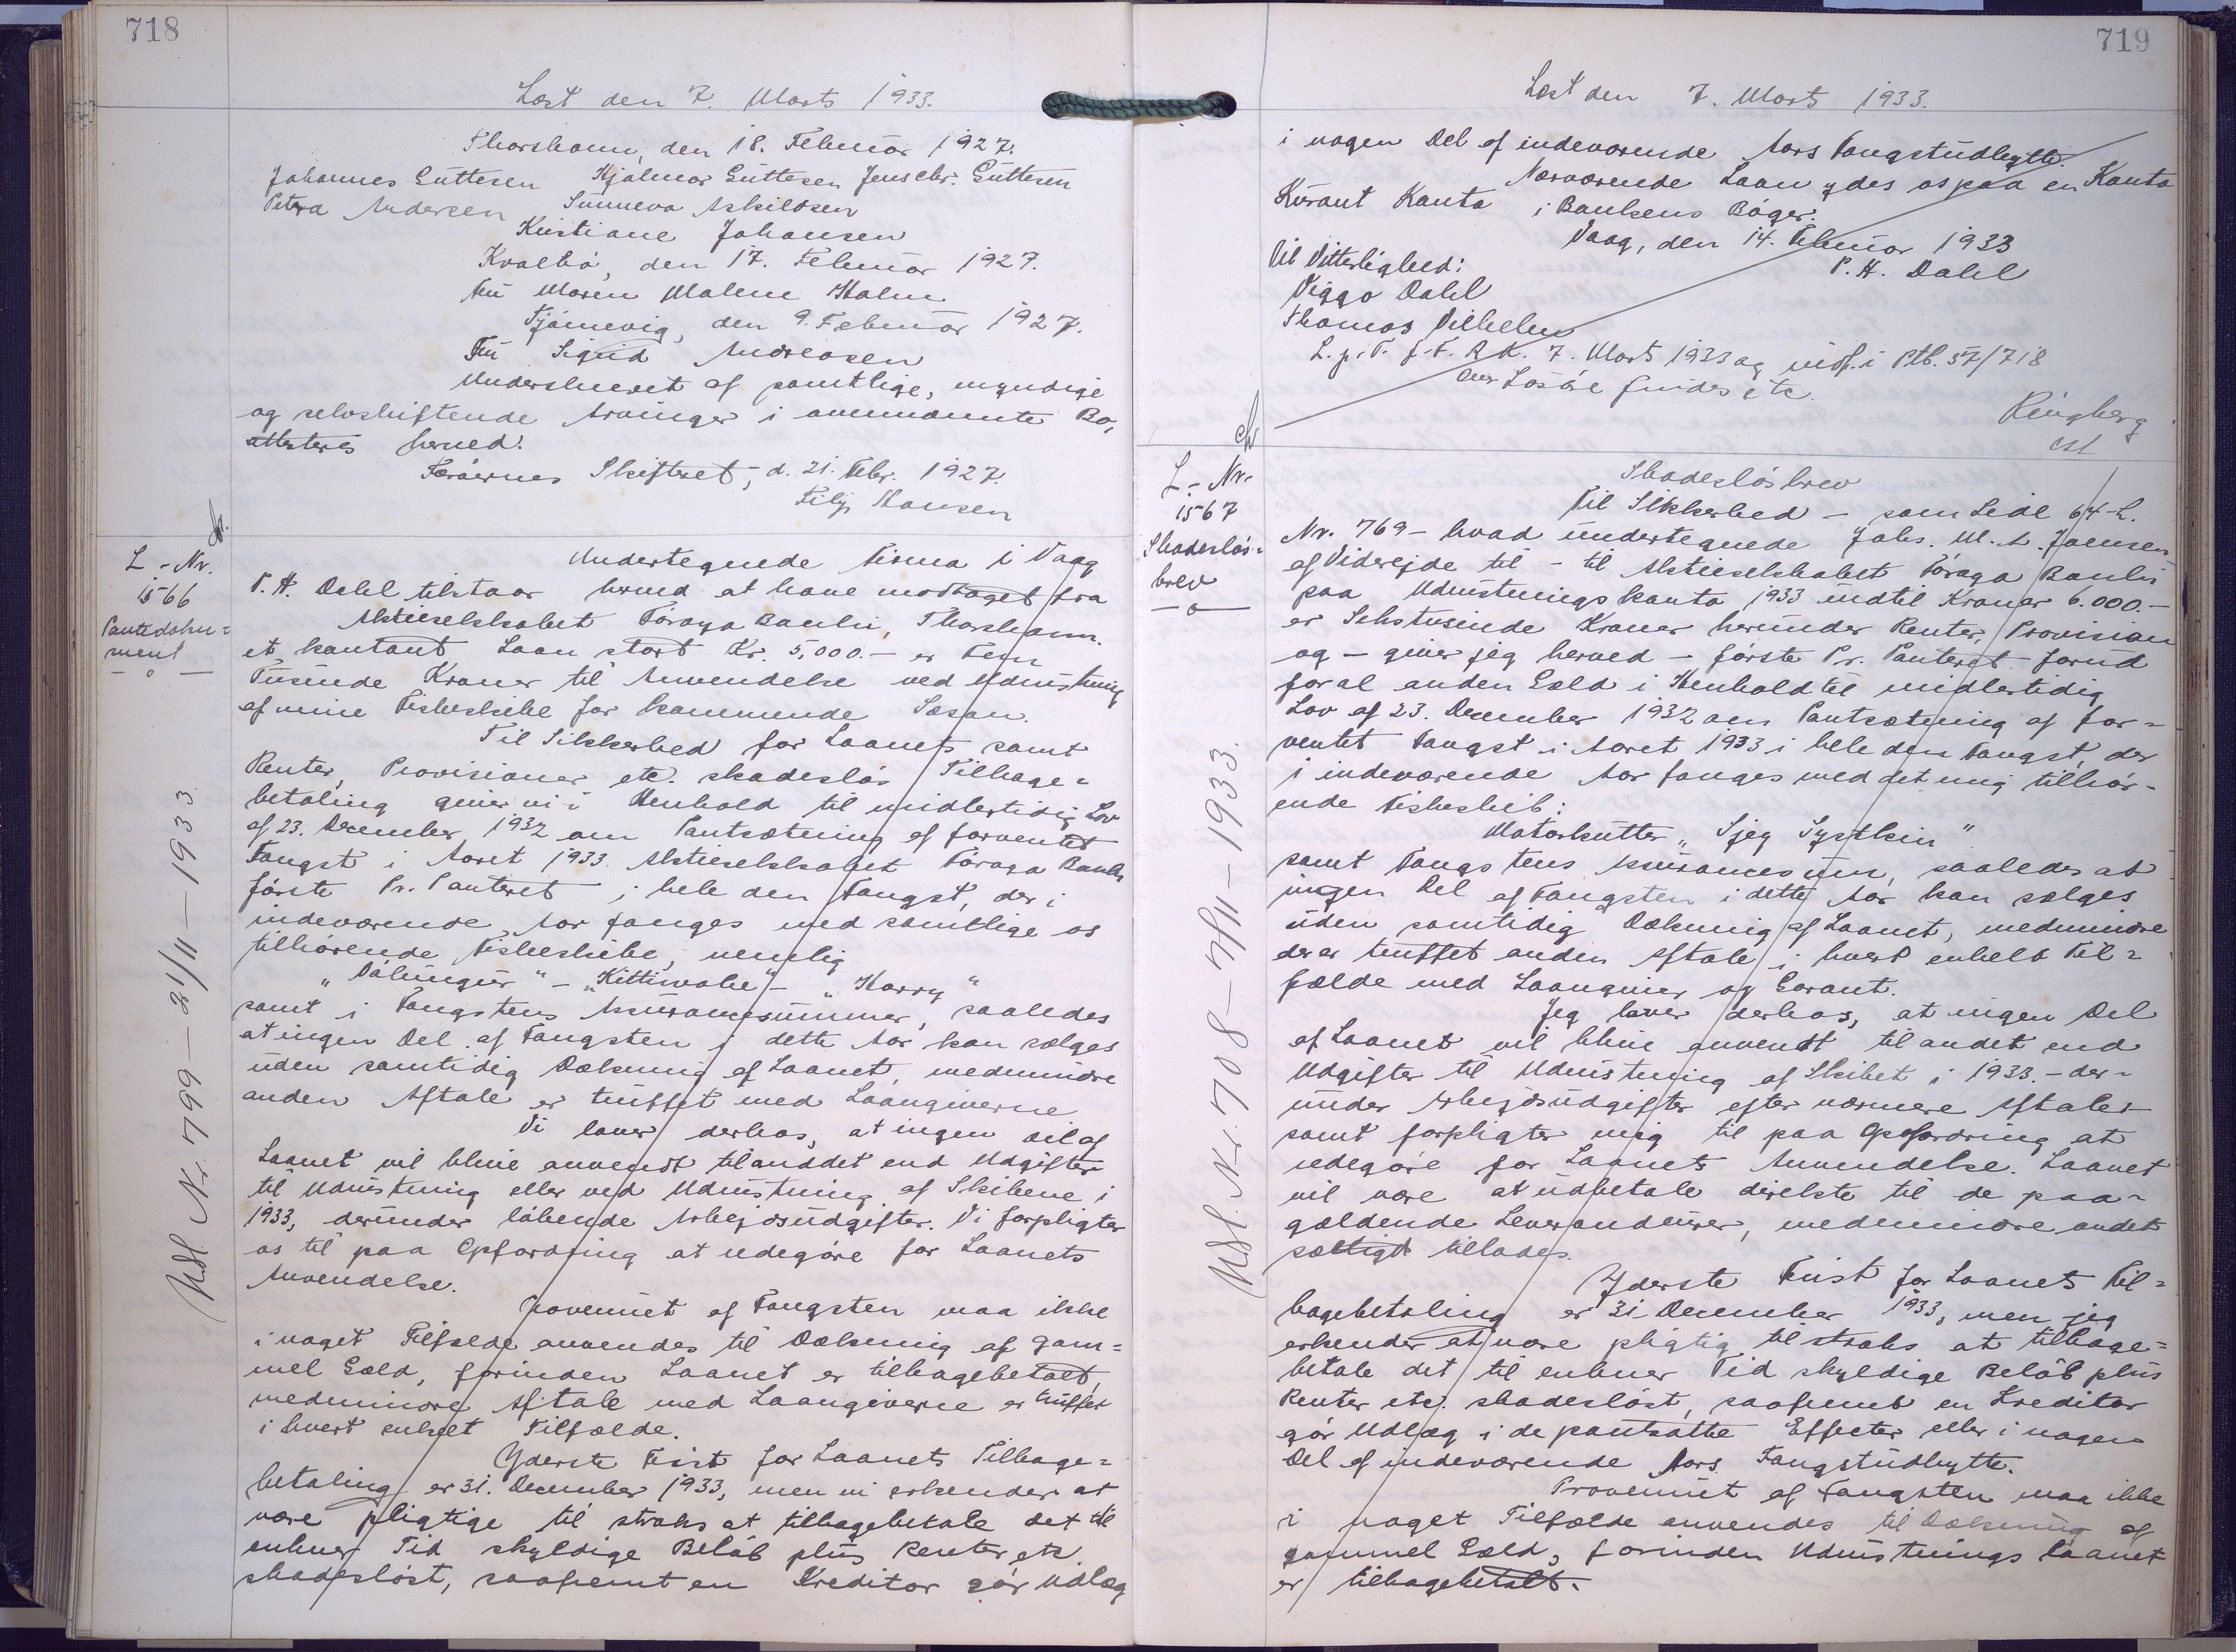 718
Læst den 7. Marts 1933.
Thorshavn, den 18. Februar 1927.
Johannes Guttesen Hjalmar Guttesen Jens Chr. Guttesen
Petra Andersen Sunneva Askildsen
Kristiane Johansen
Kvalbø, den 17. Februar 1927.
Fru Maren Malene Holm
Tjørnevig, den 9. Februar 1927.
Fru Sigrid Andreasen
Underskrevet af samtlige, myndige
og selvskiftende Arvinger i ovennævnte Bo,
attesteres herved.
Færøernes Skifteret, d. 21. Febr. 1927.
Hansen
L.-Nr.
1566
Pantedoku=
ment
— o —
Udsl. Nr. 799 — 21/11 — 1933.
Undertegnede Firma i Vaag
P. H. Dahl tilstaar herved at have modtaget fra
Aktieselskabet Føroya Banki, Thorshavn.
et kontant Laan stort Kr. 5,000.— er Fem
Tusinde Kroner til Anvendelse ved Udrustning
af mine Fiskeskibe for kommende Sæson.
Til Sikkerhed for Laanets samt
Renter, Provisioner etc. skadesløs Tilbage=
betaling giver vi i Henhold til midlertidig Lov
af 23. December 1932 om Pantsætning af forventet
Fangst i Aaret 1933. Aktieselskabet Føroya Banki
første Pr. Panteret i hele den Fangst, der i
indeværende Aar fanges med samtlige os
tilhørende Fiskeskibe, nemlig
„Dálungur" – „Kittiwake" – „Harry"
samt i Fangstens Assurancesummer, saaledes
at ingen Del af Fangsten i dette Aar kan sælges
uden samtidig Dækning af Laanet, medmindre
anden Aftale er truffet med Laangiverne
Vi lover derhos, at ingen Del af
Laanet vil blive anvendt til anddet end Udgifter
til Udrustning eller ved Udrustning af Skibene i
1933, derunder løbende Arbejdsudgifter. Vi forpligter
os til paa Opfordring at redegøre for Laanets
Anvendelse.
Provenuet af Fangsten maa ikke
i noget Tilfælde anvendes til Dækning af gam=
mel Gæld, forinden Laanet er tilbagebetalt,
medmindre Aftale med Laangiverne er truffet
i hvert enkelt Tilfælde.
Yderste Frist for Laanets Tilbage=
betaling er 31. December 1933, men vi erkender at
være pligtige til straks at tilbagebetale det til
enhver Tid skyldige Beløb plus Renter etc.
skadesløst, saafremt en Kreditor gør Udlæg
719
Læst den 7. Marts 1933.
i nogen Del af indeværende Aars Fangstudbytte.
Nærværende Laan ydes os paa en Konto
Kurant Konto i Bankens Bøger.
Vaag, den 14. Februar 1933
P. H. Dahl
Til Vitterlighed:
Viggo Dahl
Thomas Vilhelm
L. p. T. f. F. R.K. 7. Marts 1933 og indf. i Ptb. 57/718
Løsøre findes etc.
Ringberg
cst
L.-Nr.
1567
Skadesløs=
brev
— o —
Udsl. Nr. 708 — 7/11 — 1933.
Skadesløsbrev
Til Sikkerhed – som Lidl 64-L.
Nr. 769 – hvad undertegnede Johs. M. A. Joensen
af Viderejde til – til Aktieselskabet Føroya Banki
paa Udrustningskonto 1933 indtil Kroner 6.000.—
er Sekstusinde Kroner herunder Renter, Provision
og – giver jeg herved – første Pr. Panteret forud
for al anden Gæld i Henhold til midlertidig
Lov af 23. December 1932 om Pantsætning af for=
ventet Fangst i Aaret 1933 i hele den Fangst, der
i indeværende Aar fanges med det mig tilhør=
ende Fiskeskib:
Motorkutter „Sjey Systkin"
samt Fangstens Assurancesum, saaledes at
ingen Del af Fangsten i dette Aar kan sælges
uden samtidig Dækning af Laanet, medmindre
der er truffet anden Aftale i hvert enkelt Til=
fælde med Laangiver og Garant.
Jeg lover derhos, at ingen Del
af Laanet vil blive anvendt til andet end
Udgifter til Udrustning af Skibet i 1933. – der=
under Arbejdsudgifter efter nærmere Aftale –
samt forpligter mig til paa Opfordring at
redegøre for Laanets Anvendelse. Laanet
vil være at udbetale direkte til de paa=
gældende Leverandører, medmindre andet
særligt tillades.
Yderste Frist for Laanets Til=
bagebetaling er 31 December 1933, men jeg
erkender at være pligtig til straks at tilbage=
betale det til enhver Tid skyldige Beløb plus
Renter etc. skadesløst, saafremt en Kreditor
gør Udlæg i de pantsatte Effecter eller i nogen
Del af indeværende Aars Fangstudbytte.
Provenuet af Fangsten maa ikke
i noget Tilfælde anvendes til Dækning af
gammel Gæld, forinden Udrustningslaanet
er tilbagebetalt.